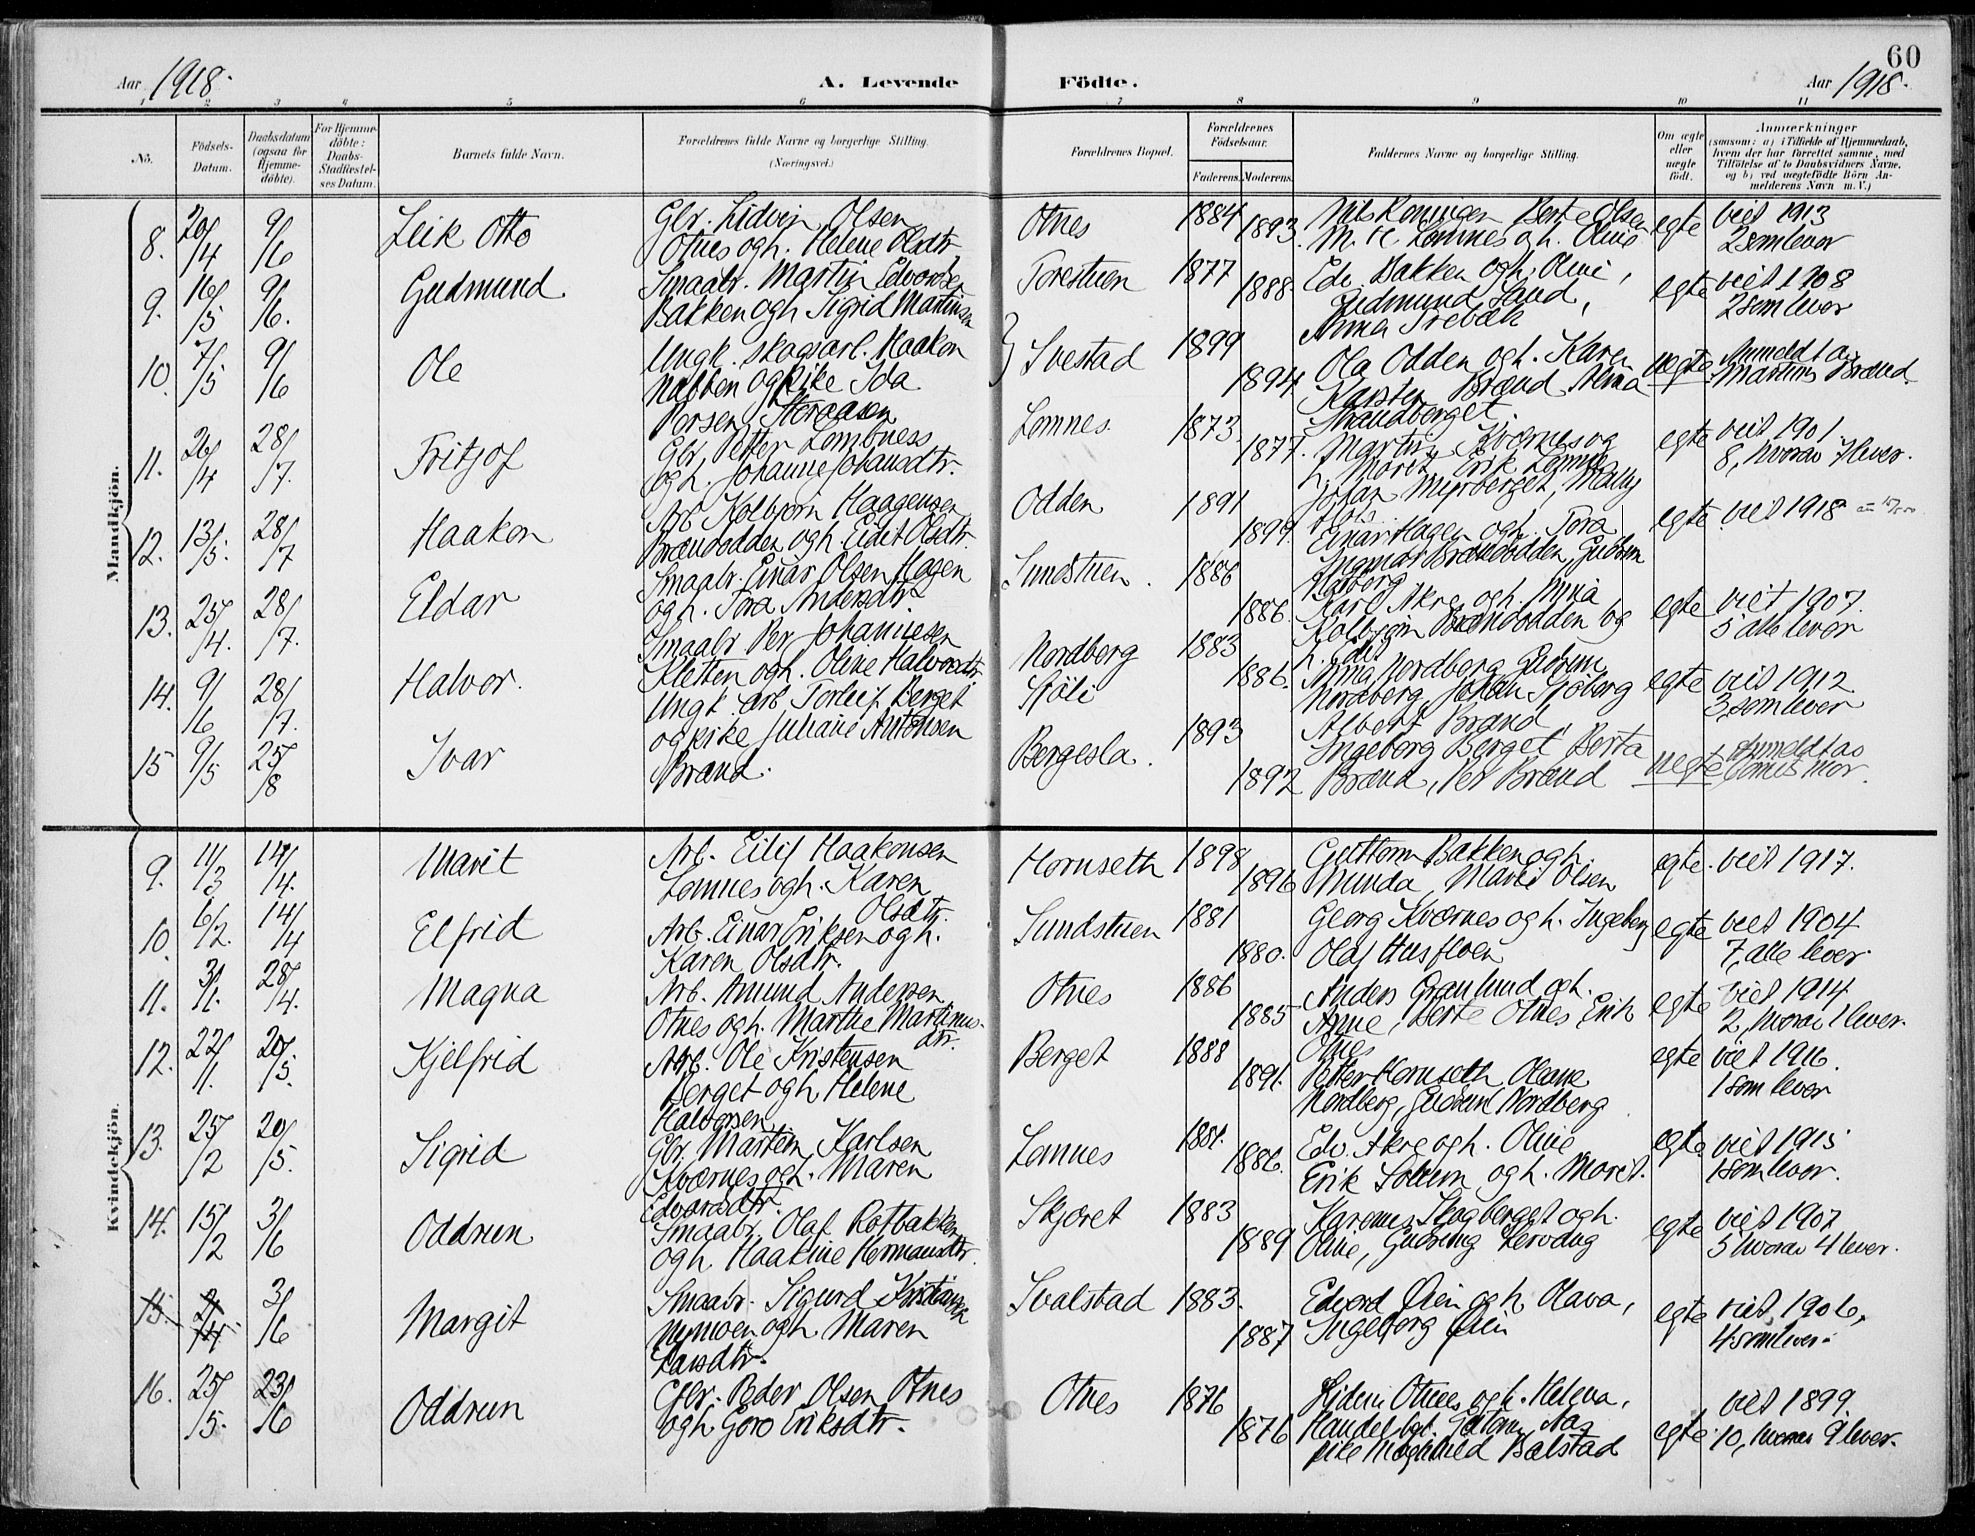 60
Aar 1918.
A. Levende Födte.
Aar 1918.
1 2 3 4 5 6 7 8 9 10 11
No.
Födsels-Datum.
Daabsdatum (ogsaa for Hjemme-döbte).
For Hjemme-döbte: Daabs-Stadfæstel-ses Datum.
Barnets fulde Navn.
Forældrenes fulde Navne og borgerlige Stilling. (Næringsvei.)
Forældrenes Bopæl.
Forældrenes Födselsaar.
Faderens. Moderens.
Faddernes Navne og borgerlige Stilling.
Om ægte eller uægte födt.
Anmærkninger
(saasom: a) i Tilfælde af Hjemmedaab, hvem der har forrettet samme, med Tilföielse af to Daabsvidners Navne, og b) ved uægtefödte Börn An-melderens Navn m. V.)
Mandkjön.
8. 20/4 9/6 Leik Otto
Gbr. Lidvin Olsen
Otnes og h. Helene Olsdtr
Otnes 1884 1893.
Berte Olsen
Lomnes og h. Oline
egte viet 1913
2 som lever
9. 16/5 9/6. Gudmund
Smaabr. Martin Edvardsen
Bakken og h Sigrid Martinsen
Torestuen 1877 1888.
Edv. Bakken og h. Oline,
Gudmund Sand,
Anna Trebæk
egte viet 1908
2 som lever
10. 7/5 9/6 Ole
Ungk. skogsarb. Haakon
Nabben og pike Ida
Persen Storaasen
Svestad 1899 1894.
Ola Odden og h. Karen
Karsten Brænd, Alma
Strandberget
uegte Anmeldt av
Martin Brænd
11. 26/4 28/7. Fritjof
Gbr. Petter Lombness
og h. Johanne Johansdtr.
Lomnes. 1873. 1877.
Martin Kværnes og
h. Marit, Erik Lomnes
Johan Myrberget, Mally
egte viet 1901
8, hvorav 7 lever.
12. 13/5. 28/7 Haakon
Arb. Kolbjørn Haagensen
Brændodden og h. Edit Olsdtr.
Odden 1891 1899.
Einar Hagen og h. Tora
Ingmar Brændodden, Gudrun
egte viet 1918
13. 25/4. 28/7. Eldar
Smaabr. Einar Olsen Hagen
og h. Tora Andersdtr.
Sundstuen. 1886 1886.
Karl Akre og h. Mina
Kolbjørn Brændodden og
h. Edit
egte viet 1907.
5 alle lever
14. 9/6 28/7. Halvor.
Smaabr Per Johannesen
Kletten og h. Oline Halvorsdtr
Nordberg
Sjöli 1883 1886.
Anna Nordberg, Gudrun
Nordberg, Johan Sjöberg
egte viet 1912
3, som lever
15 9/5 25/8 Ivar
Ungk. arb Torleif Berget
og pike Juliane Antonsen
Brænd.
Bergesla. 1893 1892
Albert Brænd,
Ingeborg Berget, Berta
Brænd, Per Brænd
uegte Anmeldt av
barnets mor.
Kvindekjön.
9. 11/3 14/4. Marit
Arb. Eilif Haakonsen
Lomnes og h. Karen
Olsdtr.
Hornseth 1898 1896
Guttorm Bakken og h
Minda, Marie Olsen
egte. viet 1917.
10. 6/2. 14/4 Elfrid
Arb. Einar Eriksen og h.
Karen Olsdtr.
Sundstuen 1881 1880.
Georg Kværnes og h. Ingeborg
Olaf Husfloen
egte viet 1904
7, alle lever
11. 3/1. 28/4. Magna
Arb. Amund Andersen
Otnes og h. Marthe Martinus-
dtr.
Otnes 1886 1885
Anders Granlund og h.
Anne, Berte Otnes Erik
Otnes
egte viet 1914
2, hvorav 1 lever.
12. 22/1. 20/5. Kjelfrid
Arb. Ole Kristensen
Berget og h Helene
Halvorsen
Berget 1888 1891.
Petter Hornseth Oleane
Nordberg, Gudrun Nordberg
egte viet 1916.
1 som lever
13. 25/2 20/5. Sigrid
Gbr. Martein Karlsen
Kværnes og h. Maren
Edvardsdtr.
Lomnes 1881. 1886.
Edv. Akre og h. Oline
Erik Solum og h. Marit.
egte viet 1915
1 som lever.
14. 15/2 3/6 Oddrun
Smaabr. Olaf Rotbakken
og h. Haakine Hermansdtr.
Skjæret 1883 1889
Karenus Skogberget og h.
Oline,
egte viet 1907
5 hvorav 4 lever.
15. 3/6 Margit
Smaabr. Sigurd Kristiansen
Nymoen og h Maren
Larsdtr.
Svalstad 1883. 1887
Edvard Öien og h Olava,
Ingeborg Öien
egte viet 1906,
4 som lever.
16. 25/5. 23/6 Oddrun
Gbr. Peder Olsen Otnes
og h Goro Eriksdtr.
Otnes 1876 1876
Lidvin Otnes og h. Helena,
pike Magnhild Bælstad
egte. viet 1899.
10, hvorav 9 lever.